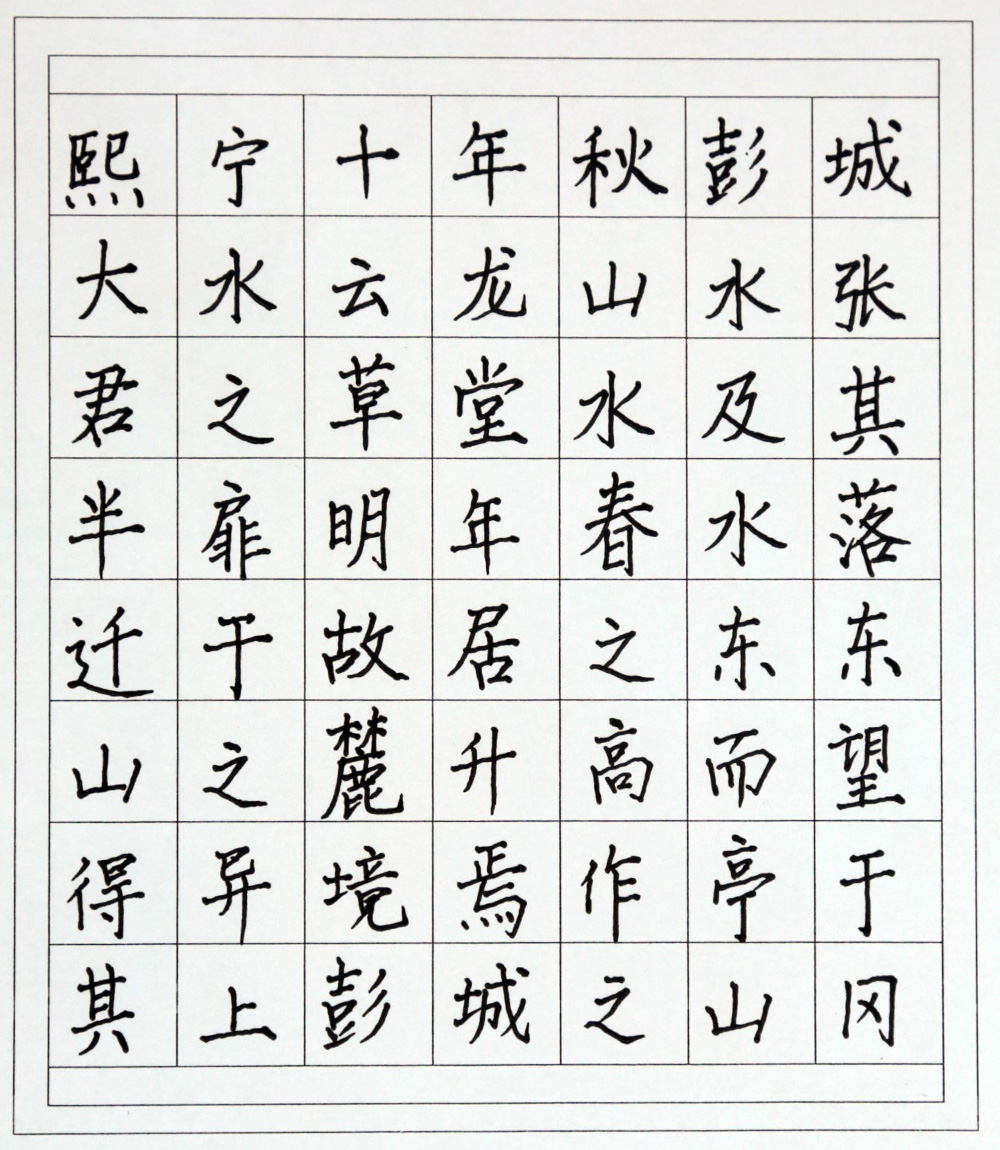 熙宁十年秋彭城
大水云龙山水张
君之草堂水及其
半扉明年春水落
迁于故居之东东
山之麓升高而望
得异境焉作亭于
其上彭城之山冈